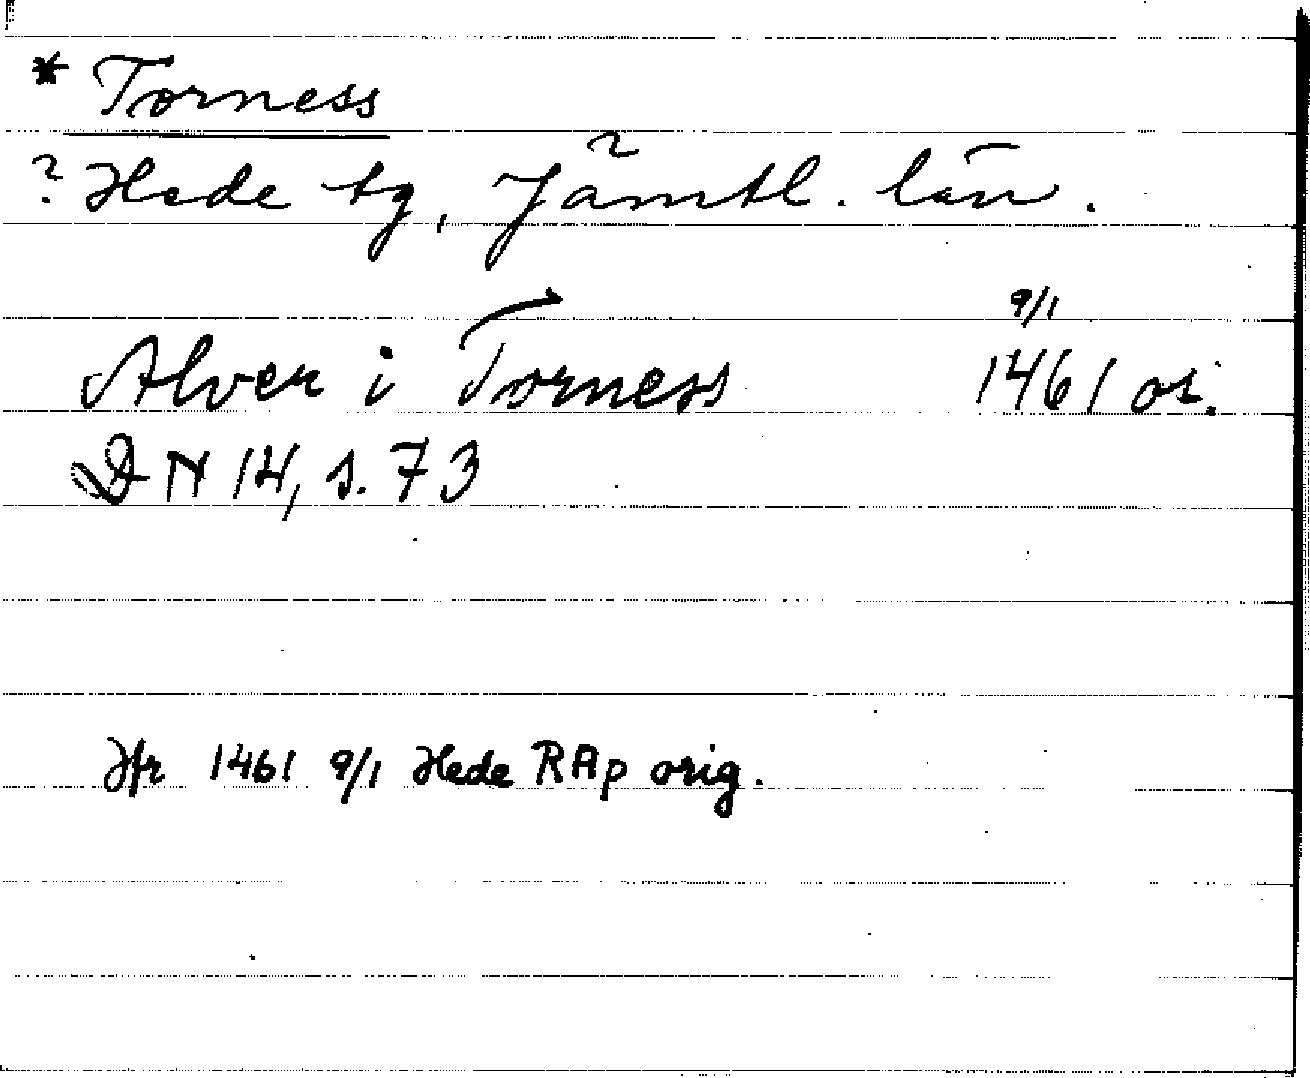 * Torness
? Hede tg, Jämtl. län.
9/1
Alver i Torness 1461 or.
DN 14, s. 73
Jfr 1461 9/1 Hede RAp orig.